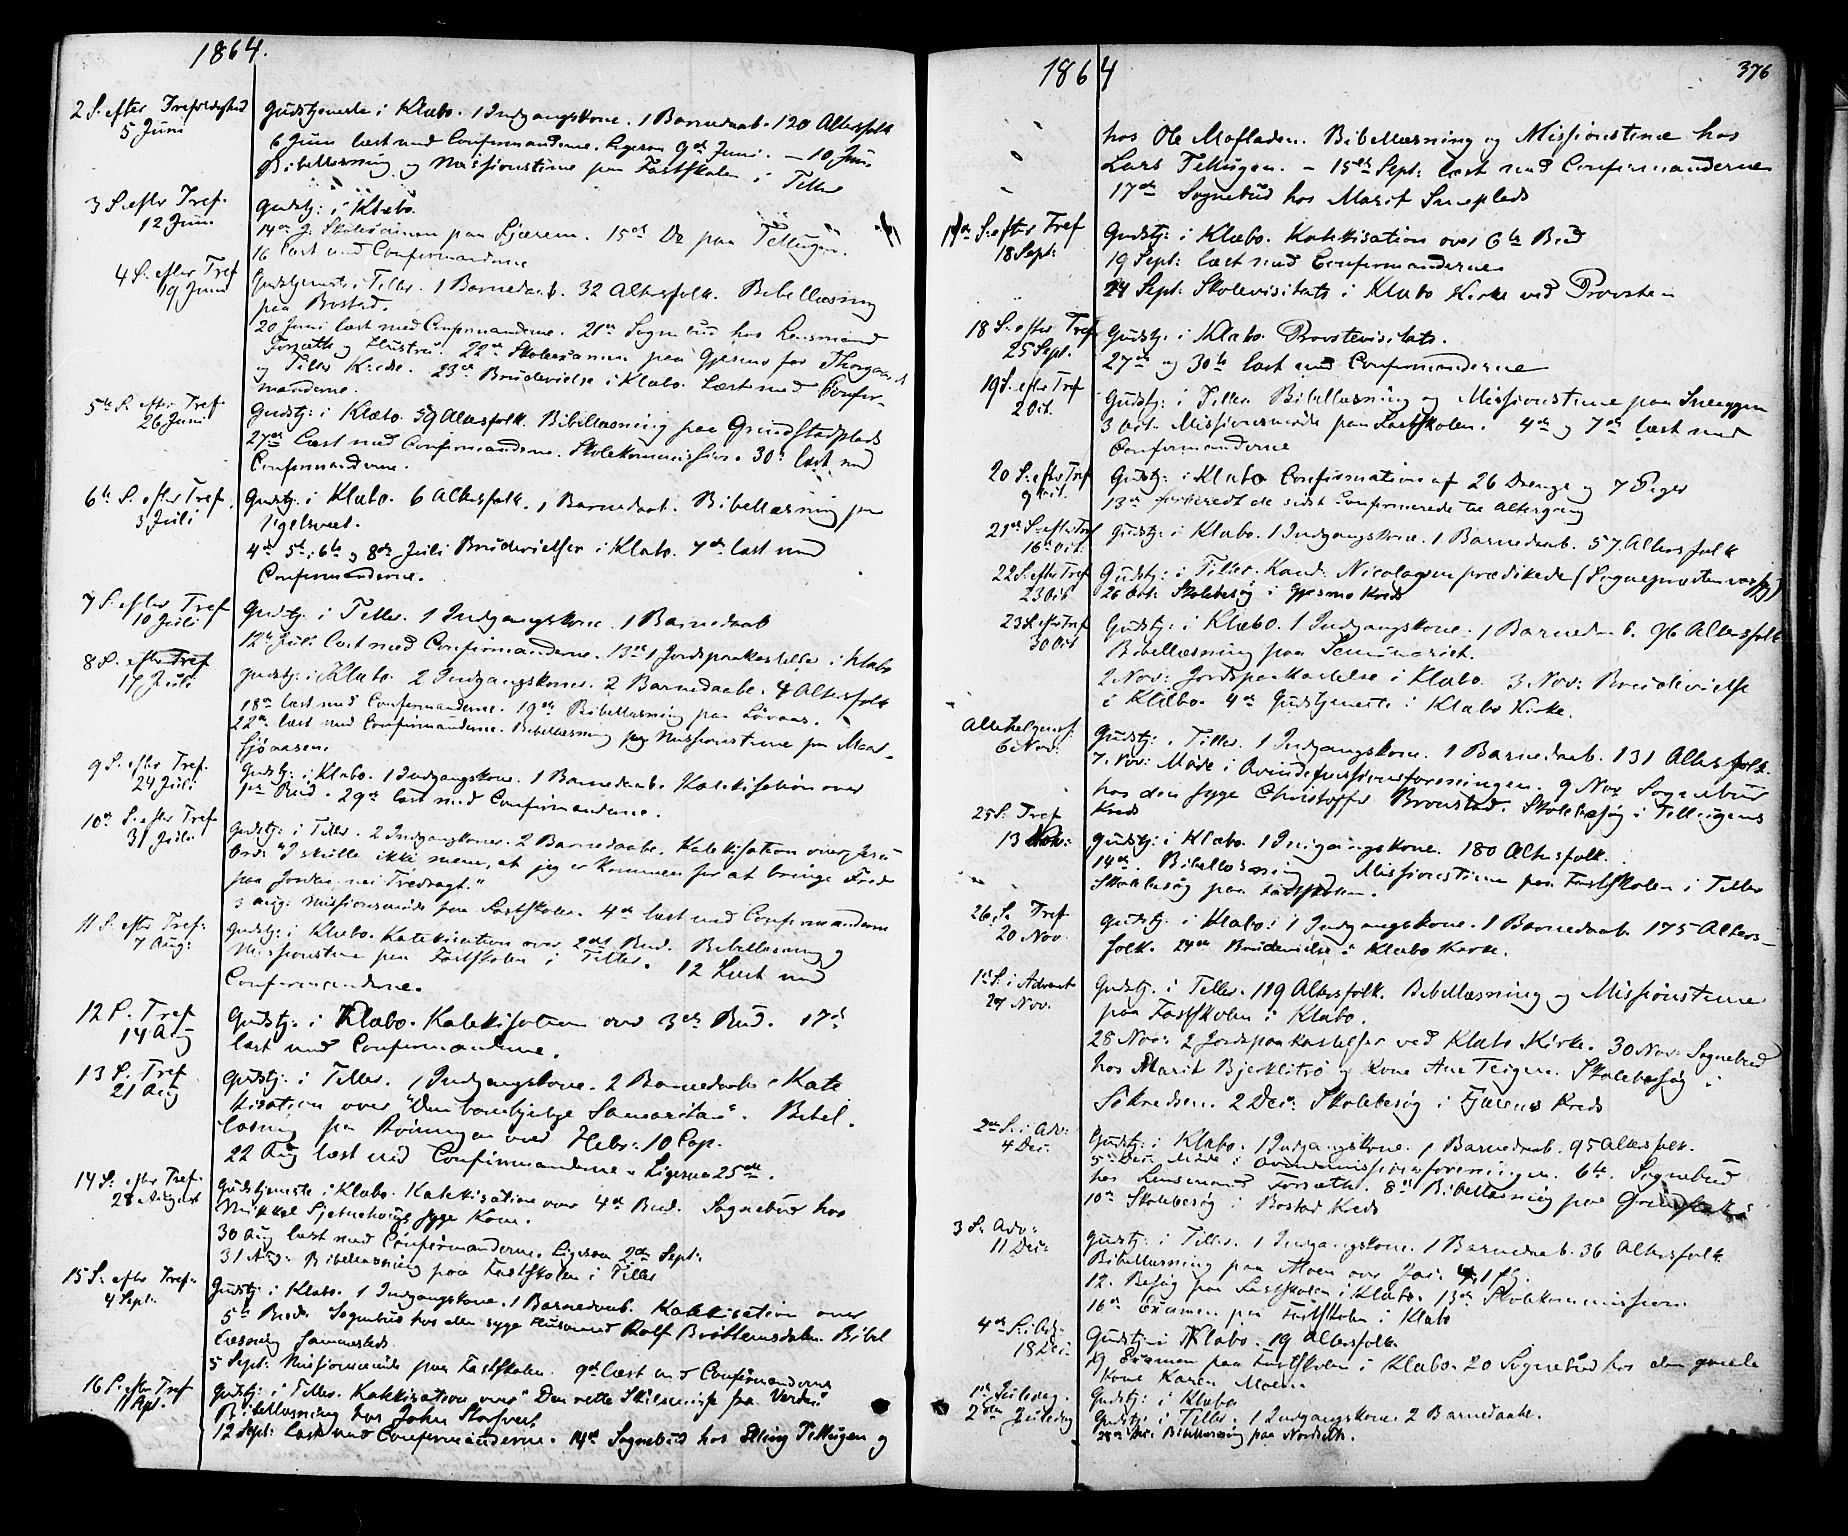 1864.
2 S. efter Trefoldighed
5 Juni
Gudstjeneste i Klæbo. 1 Indgangskone. 1 Barnedaab. 120 Altersfolk
6 Juni læst med Confirmanderne. Ligesaa 9de Juni. – 10 Juni
Bibellæsning og Missionstime paa Fastskolen i Tiller
3 S. efter Tref.
12 Juni
Gudstj: i Klæbo.
14de J. Skoleexamen paa . 15de Do paa Tellugen.
16 læst med Confirmanderne
4 S. efter Tref
19 Juni
Gudstjeneste i Tiller. 1 Barnedaab. 32 Altersfolk. Bibellæsning
paa Bostad.
20 Juni læst med Confirmanderne. 21de Sognebud hos Lensmand
Forsæth og Hustru. 22de Skoleexamen paa Gjesmo for Thorgaard
og Tiller Kredse. 23de Brudevielse i Klæbo. Læst med Confir-
manderne.
5te S. efter Tref.
26 Juni
Gudstj: i Klæbo. 59 Altersfolk. Bibellæsning paa Grindstadplads
27de læst med Confirmanderne. Skolekommission. 30: læst med
Confirmanderne.
6te S. efter Tref.
3 Juli
Gudstj. i Klæbo. 6 Altersfolk. 1 Barnedaab. Bibellæsning paa
4de 5te, 6te og 8de Juli Brudevielser i Klæbo. 7de læst med
Confirmanderne.
7 S. efter Tref
10 Juli
Gudstj. i Tiller. 1 Indgangskone. 1 Barnedaab
12te Juli læst med Confirmanderne. 13de 1 Jordpaakastelse i Klæbo
8 S. efter Tref
17 Juli
Gudstj: i Klæbo. 2 Indgangskoner. 2 Barnedaabe. 4 Altersfolk
18de læst med Confirmanderne. 19de Bibellæsning paa Løvaas.
22de læst med Confirmanderne. Bibellæsning og Missionstime paa
9 S. efter Tref.
24 Juli
Gudstj: i Klæbo. 1 Indgangskone. 1 Barnedaab. Katekisation over
1ste Bud. 29de læst med Confirmanderne.
10de S. efter Tref
31 Juli
Gudstj: i Tiller. 2 Indgangskoner. 2 Barnedaabe. Katekisation over Jesu
Ord: "I skulle ikke mene, at jeg er kommen for at bringe Fred
paa Jorden, nei Tvedragt."
3 Aug: Missionsmøde paa Fastskolen. 4de læst med Confirmanderne
11 S. efter Tref:
7 Aug:
Gudstj: i Klæbo. Katekisation over 2det Bud. Bibellæsning og
Missionstime paa Fastskolen i Tiller. 12 læst med
Confirmanderne.
12 S. Tref
14 Aug
Gudstj: i Klæbo. Katekisation over 3die Bud. 17de
læst med Confirmanderne.
13 S. Tref
21 Aug
Gudstj: i Tiller. 1 Indgangskone. 2 Barnedaabe. Kate
kisation over "Den barmhjertige Samaritan". Bibel-
læsning paa Rønningen over Hebr: 10 Cap.
22 Aug læst med Confirmanderne. Ligesaa 25de.
14 S. efter Tref.
28 August
Gudstjeneste i Klæbo. Katekisation over 4de Bud. Sognebud hos
Mikkel syge Kone.
30 Aug læst med Confirmanderne. Ligesaa 2den Sept:
31 Aug: Bibellæsning paa Fastskolen i Tiller
15 S: efter Tref:
4 Sept:
Gudstj: i Klæbo. 1 Indgangskone. 1 Barnedaab. Katekisation over
5te Bud. Sognebud hos den syge Husmand Rolf Brøttemsdalen. Bibel
læsning sammesteds
5 Sept: Missionsmøde paa Fastskolen. 9de læst med Confirmanderne
16 S. efter Tref
11 Sept.
Gudstj: i Tiller. Katekisation over "Den rette Skilsmisse fra Verden"
Bibellæsning hos John
12 Sept: læst med Confirmanderne. 14de Sognebud hos Elling Tellugen og
1864
376
hos Ole Mosladen. Bibellæsning og Missionstime hos
Lars Tellugen. – 15de Sept: læst med Confirmanderne
17de Sognebud hos Marit
17de S. efter Tref
18 Sept:
Gudstj: i Klæbo. Katekisation over 6te Bud
19 Sept: læst med Confirmanderne
24 Sept: Skolevisitats i Klæbo Kirke ved Provsten
18 S. efter Tref
25 Sept.
Gudstj: i Klæbo. Provstevisitats.
27de og 30te læst med Confirmanderne
19 S. efter Tref
2 Oct.
Gudstj: i Tiller. Bibellæsning og Missionstime paa
3 Oct. Missionsmøde paa Fastskolen. 4de og 7de læst med
Confirmanderne
20 S. efter Tref
9 Oct.
Gudstj: i Klæbo Confirmation af 26 Drenge og 7 Piger
13de forberedt de sidst Confirmerede til Altergang
21de S. efter Tref
16de Oct.
Gudstj: i Klæbo. 1 Indgangskone. 1 Barnedaab. 57 Altersfolk
22 S. efter Tref
23 Oct
Gudstj: i Tiller. Kand: Nicolaysen prædikede (Sognepræsten var syg)
26 Oct: Skolebesøg i Gjesmo Kreds
23 S. efter Tref
30 Oct
Gudstj: i Klæbo. 1 Indgangskone. 1 Barnedaab. 96 Altersfolk
Bibellæsning paa Seminariet.
2 Nov: Jordpaakastelse i Klæbo. 3 Nov: Brudevielse
i Klæbo. 4de Gudstjeneste i Klæbo Kirke.
Allehelgensf:
6 Nov:
Gudstj. i Tiller. 1 Indgangskone. 1 Barnedaab. 131 Altersfolk.
7. Nov: Møde i Qvindemissionsforeningen. 9 Nov Sognebud
hos den syge Christoffer Broustad. Skolebesøg i Tellugens
Kreds
25 S: Tref
13 Nov:
Gudstj: i Klæbo. 1 Indgangskone. 180 Altersfolk.
14de. Bibellæsning og Missionstime paa Fastskolen i Tiller
Skolebesøg paa Fastskolen.
26. S. Tref
20 Nov
Gudstj: i Klæbo: 1 Indgangskone. 1 Barnedaab. 175 Alters-
folk. 24de Brudevielse i Klæbo Kirke.
1ste S. i Advent
27 Nov.
Gudstj. i Tiller. 119 Altersfolk. Bibellæsning og Missionstime
paa Fastskolen i Klæbo.
28 Nov: 2 Jordpaakastelser ved Klæbo Kirke. 30 Nov: Sognebud
hos Marit og Kone Ane Teigen. Skolebesøg i
. 2 Dec: Skolebesøg i Kreds
2den S. i Adv:
4 Dec:
Gudstj: i Klæbo. 1 Indgangskone. 1 Barnedaab. 95 Altersfolk.
5te Dec: Møde i Qvindemissionsforeningen. 6te. Sognebud
hos Lensmand Forsæth. 8de Bibellæsning paa
10de Skolebesøg i Bostad Kreds
3 S. Adv:
11 Dec:
Gudstj: i Tiller. 1 Indgangskone. 1 Barnedaab. 36 Altersfolk
Bibellæsning paa Moen over
12. Besøg paa Fastskolen i Klæbo. 13de Skolekommission
16de Examen paa Fastskolen i Klæbo
4de S. i Adv:
18 Dec:
Gudstj: i Klæbo. 19 Altersfolk.
19 Examen paa Fastskolen i Klæbo. 20 Sognebud hos den gamle
Kone Karen Moen.
1ste Juledag.
Gudstj: i Klæbo
2den Juledag
Gudstj: i Tiller. 1 Indgangskone. 2 Barnedaabe.
28de Dec: Bibellæsning paa Nordseth.